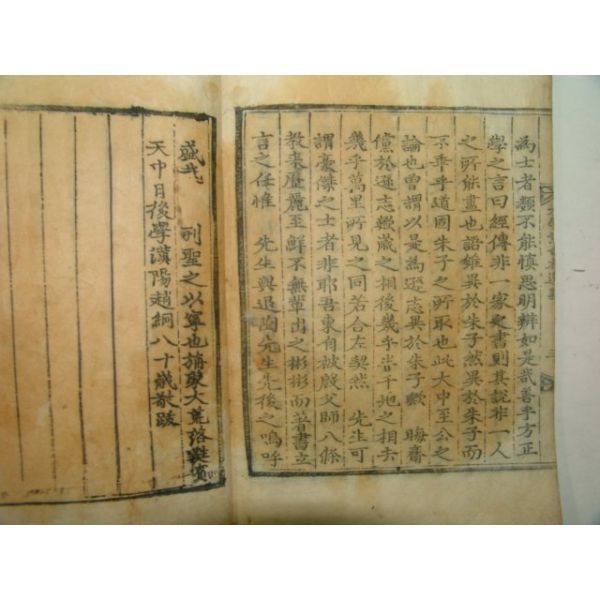 為士者類不能慎思明辨如是哉善乎方正
學之言曰經傳非一家之書則其說非一人
之所能盡也語雖異於朱子然異於朱子而
不乖乎道固朱子之所取也此大中至公之
論也曾謂以是為遜志異於朱子歟 晦齋
儻於遜志 歲之相後幾乎 千地之相去
幾乎萬里所見之同若合左契然 先生可
謂豪傑之士者非耶吾東自被殷父師八條
教來歷麗至鮮不無輩出之彬彬而著書立
言之任惟 先生與退陶先生先後之嗚呼
盛哉 列聖之以寧也旃蒙大荒落蕤賓
天中日後學漢陽趙絅八十歲敬跋